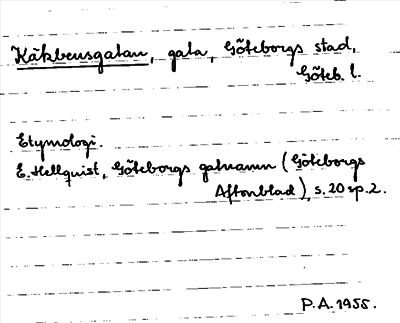 Käkbensgatan, gata, Göteborgs stad,
Göteb. l.
Etymologi.
E. Hellquist, Göteborgs gatnamn (Göteborgs
Aftonblad), s. 20 sp. 2.
P.A. 1955.